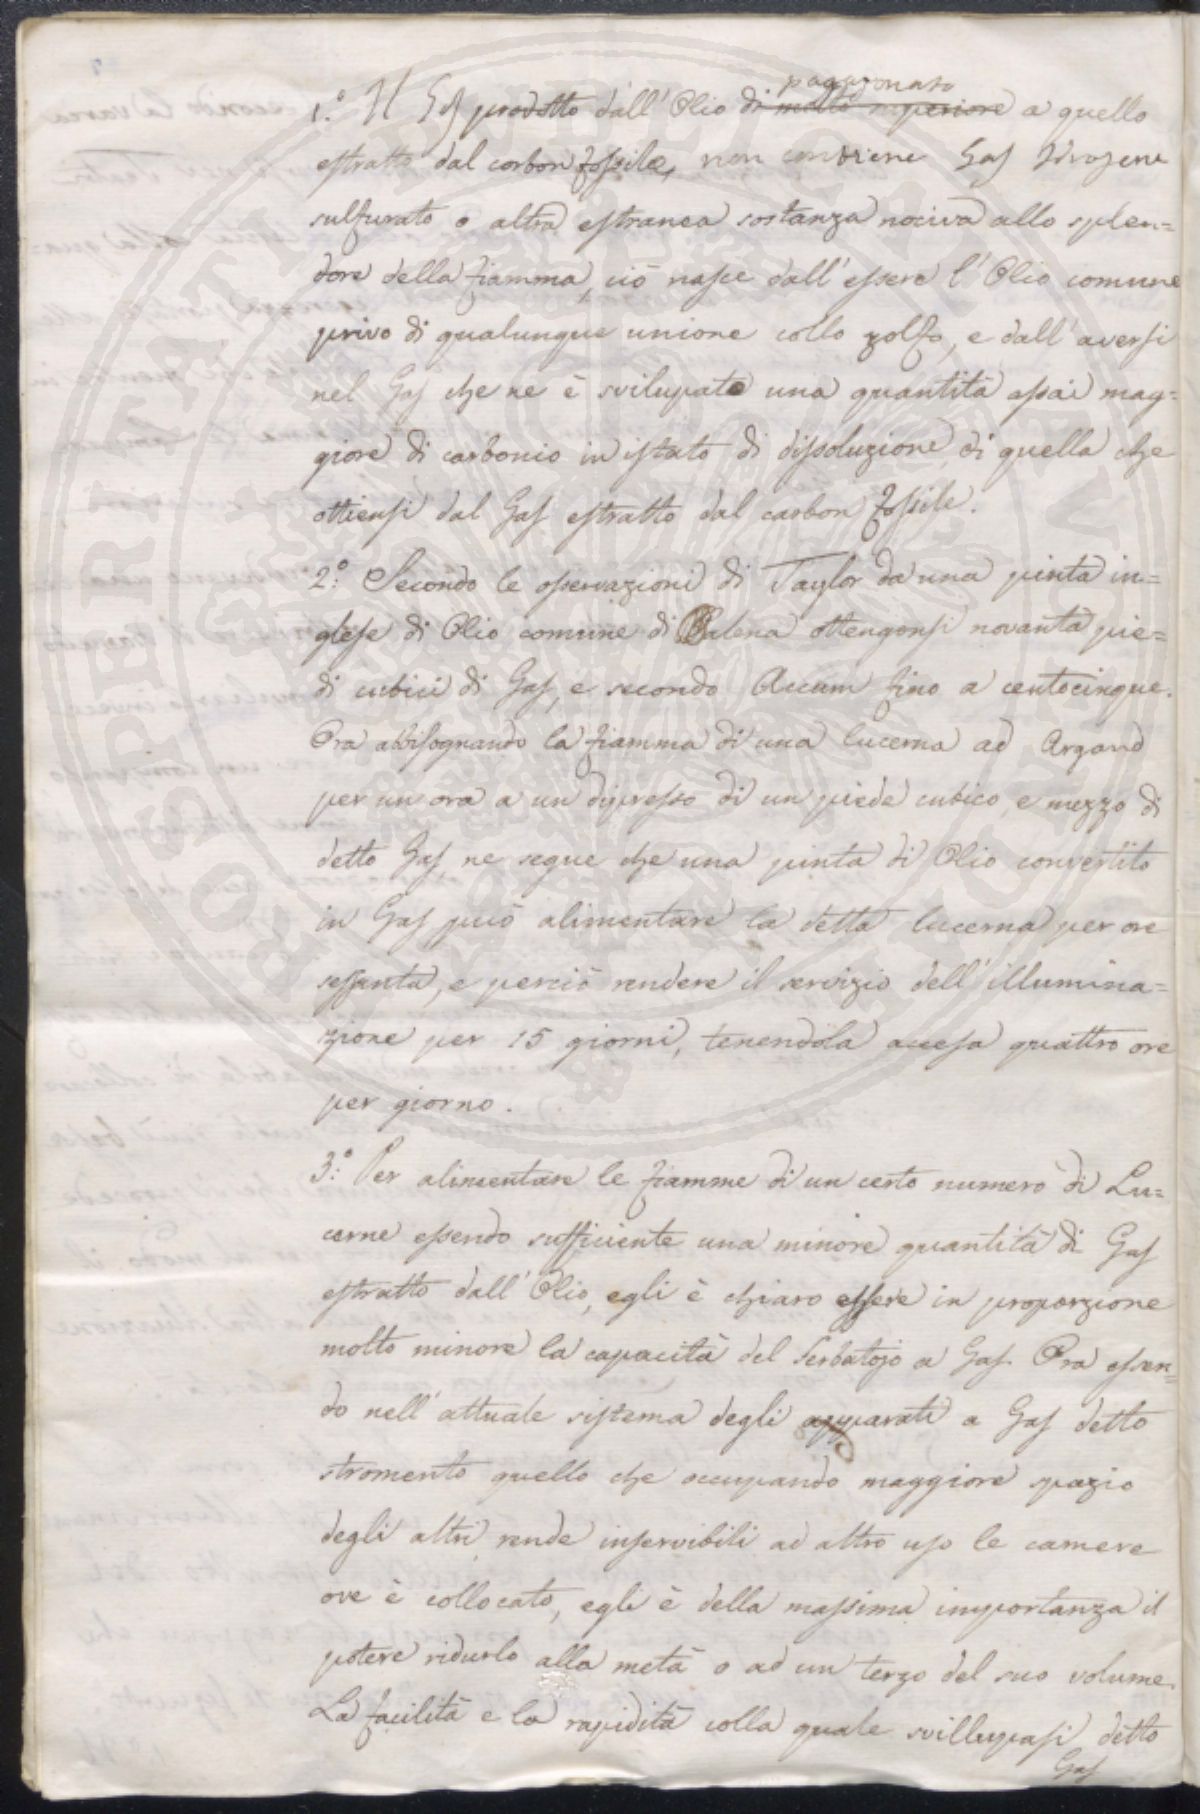 paragonato
1.° Il Gas prodotto dall' Olio di molto superiore a quello
estratto dal carbon fossile, non contiene Gas Idrogene
sulfurato o altra estranea sostanza nociva allo splen=
dore della fiamma, ciò nasce dall' essere l' Olio comune
privo di qualunque unione collo zolfo, e dall' aversi
nel Gas che ne è svilupato una quantità assai mag=
giore di carbonio in istato di dissoluzione di quella che
ottiensi dal Gas estratto dal carbon fossile.
2.° Secondo le osservazioni di Taylor da una pinta in=
glese di Olio comune di Balena ottengonsi novanta pie=
di cubici di Gas, e secondo Accum fino a centocinque.
Ora abbisognando la fiamma di una lucerna ad Argand
per un ora a un dipresso di un piede cubico e mezzo di
detto Gas, ne segue che una pinta di Olio convertito
in Gas può alimentare la detta lucerna per ore
sessanta, e perciò rendere il servizio dell' illumina=
zione per 15 giorni, tenendola accesa quattro ore
per giorno.
3.° Per alimentare le fiamme di un certo numero di Lu=
cerne essendo sufficiente una minore quantità di Gas
estratto dall' Olio, egli è chiaro essere in proporzione
molto minore la capacità del Serbatojo a Gas. Ora essen=
do nell' attuale sistema degli apparati a Gas detto
stromento quello che occupando maggiore spazio
degli altri, rende inservibili ad altro uso le camere
ove è collocato, egli è della massima importanza il
potere ridurlo alla metà o ad un terzo del suo volume.
La facilità e la rapidità colla quale svillupasi detto
Gas
PROSPERITATI PUBLICAE